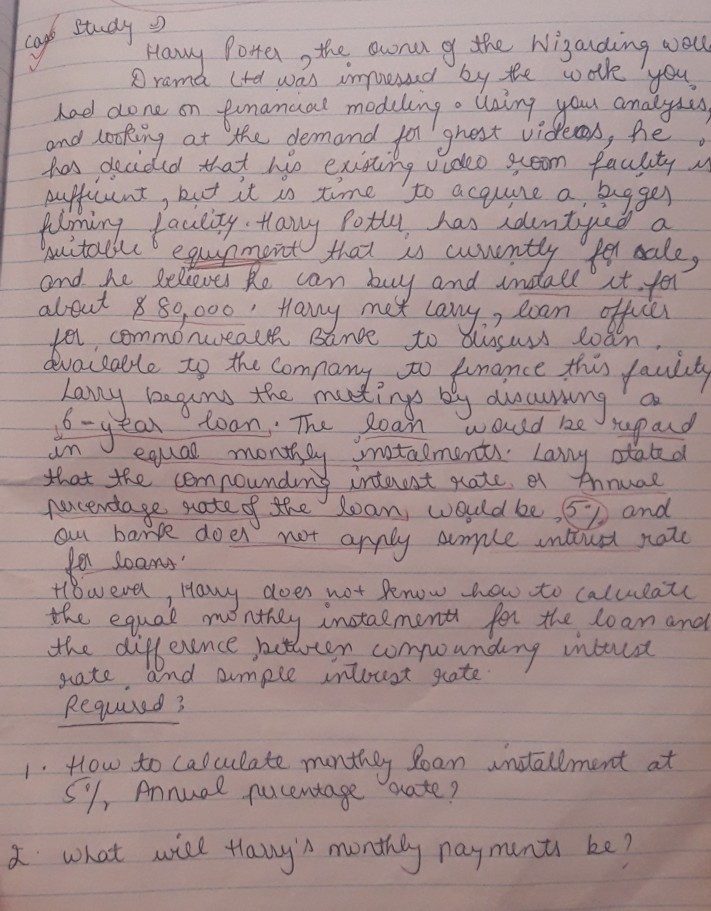 Case Study
Harry Potter, the owner of the Wizarding
Drama Ltd was impressed by the work you
had done on financial modeling. Using your analyses,
and looking at the demand for ghost videos, he
has decided that his existing video room facility is
sufficient, but it is time to acquire a bigger
filming facility. Harry Potter has identified a
suitable equipment that is currently for sale,
and he believes he can buy and install it for
about $80,000. Harry met Larry, loan officer
for commonwealth Bank to discuss loan
available to the company to finance this facility
Larry begins the meetings by discussing a
6-year loan. The loan would be repaid
in equal monthly instalments. Larry stated
that the compounding interest rate or Annual
percentage rate of the loan would be 5% and
our bank does not apply simple interest rate
for loans.
However, Harry does not know how to calculate
the equal monthly instalments for the loan and
the difference between compounding interest
rate and simple interest rate.
Required:
1. How to calculate monthly loan installment at
5% Annual percentage rate?
2. What will Harry's monthly payments be?